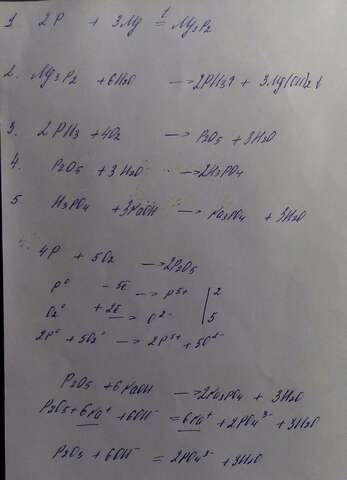 1 2P + 3Mg =^t Mg3P2
2. Mg3P2 + 6H2O → 2PH3↑ + 3Mg(OH)2↓
3. 2PH3 + 4O2 → P2O5 + 3H2O
4. P2O5 + 3H2O → 2H3PO4
5. H3PO4 + 3NaOH → Na3PO4 + 3H2O
4P + 5O2 → 2P2O5
P⁰ - 5ē → P⁵⁺ | 2
O2⁰ + 2ē → O²⁻ | 5
2P⁰ + 5O2⁰ → 2P⁵⁺ + 5O²⁻
P2O5 + 6NaOH → 2Na3PO4 + 3H2O
P2O5 + 6Na⁺ + 6OH⁻ = 6Na⁺ + 2PO4³⁻ + 3H2O
P2O5 + 6OH⁻ = 2PO4³⁻ + 3H2O